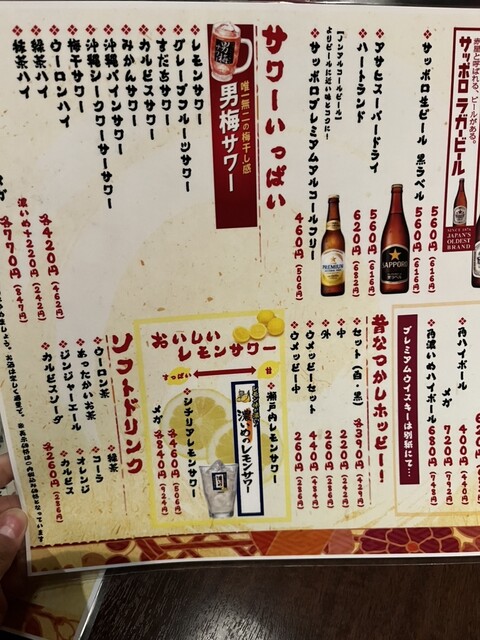 赤星と呼ばれる、ビールがある。
サッポロラガービール
SINCE 1876
JAPAN'S
OLDEST
BRAND
サッポロ生ビール 黒ラベル
560円(616円)
アサヒスーパードライ
560円(616円)
ハートランド
620円(682円)
【ノンアルコールビール】
よりビールに近い味とコクに!
サッポロプレミアムアルコールフリー
460円(506円)
PREMIUM
SAPPORO
サワーいっぱい
唯一無二の梅干し感
男梅サワー
レモンサワー
グレープフルーツサワー
すだちサワー
カルピスサワー
みかんサワー
沖縄パインサワー
沖縄シークワーサーサワー
梅干サワー
ウーロンハイ
緑茶ハイ
抹茶ハイ
各420円(462円)
濃いめ+220円(242円)
メガ 各770円(847円)
プレミアムウイスキーは別紙にて…
角ハイボール
400円(440円)
メガ
720円(792円)
角濃いめハイボール
680円(748円)
昔なつかしホッピー!
セット(白・黒)
各390円(429円)
中
220円(242円)
外
220円(242円)
ウメッピーセット
440円(484円)
ウメッピー中
260円(286円)
おいしい
レモンサワー
すっぱい
甘
瀬戸内レモンサワー
濃いめのレモンサワー
シチリアレモンサワー
各460円(506円)
メガ
各840円(924円)
ソフトドリンク
ウーロン茶
緑茶
あったかいお茶
コーラ
ジンジャーエール
オレンジ
カルピスソーダ
カルピス
各260円(286円)